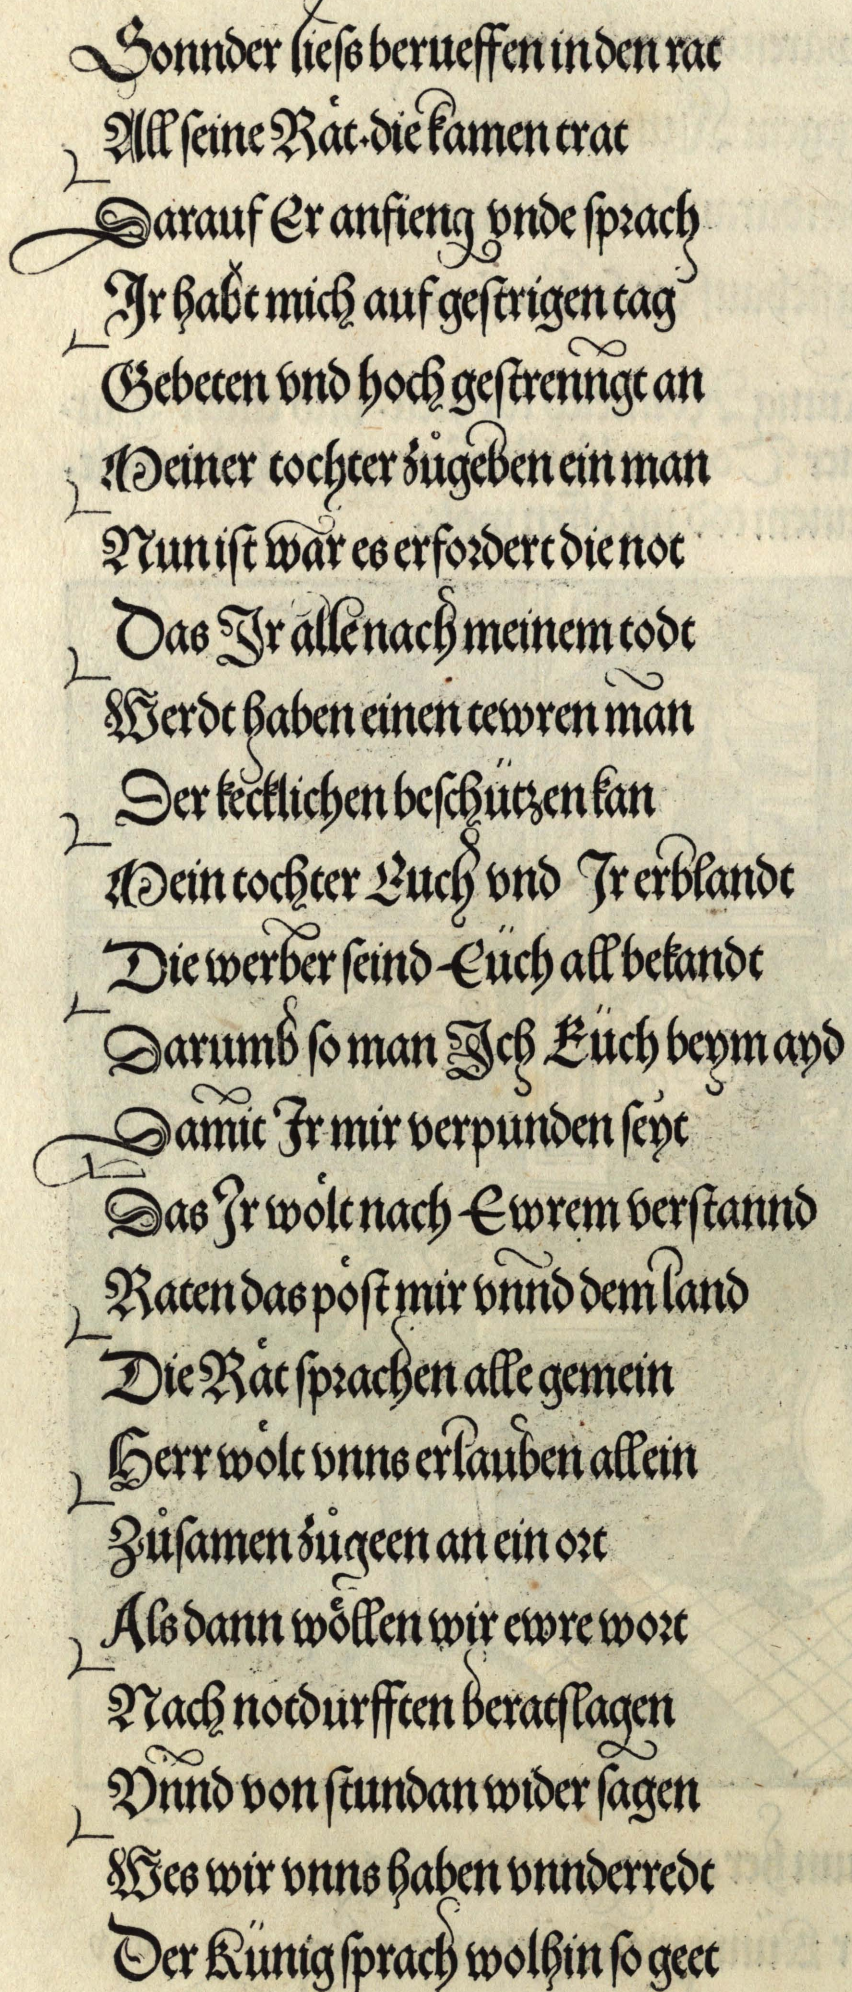 Sonnder ließ berueffen in den rat
All seine Rät. die kamen trat
Darauf Er anfieng vnde sprach
Ir habt mich auf gestrigen tag
Gebeten vnd hoch gestrenngt an
Meiner tochter zůgeben ein man
Nun ist war es erfordert die not
Das Ir alle nach meinem todt
Werdt haben einen tewren man
Der kecklichen beschützen kan
Mein tochter Euch vnd Ir erblandt
Die werber seind Euch all bekandt
Darumb so man Ich Euch beym ayd
Damit Ir mir verpunden seyt
Das Ir wölt nach Ewrem verstannd
Raten das pöst mir vnnd dem land
Die Rät sprachen alle gemein
Herr wölt vnns erlauben allein
Zůsamen zůgeen an ein ort
Als dann wöllen wir ewre wort
Nach notdurfften beratslagen
Vnnd von stundan wider sagen
Wes wir vnns haben vnnderredt
Der Künig sprach wolhin so geet